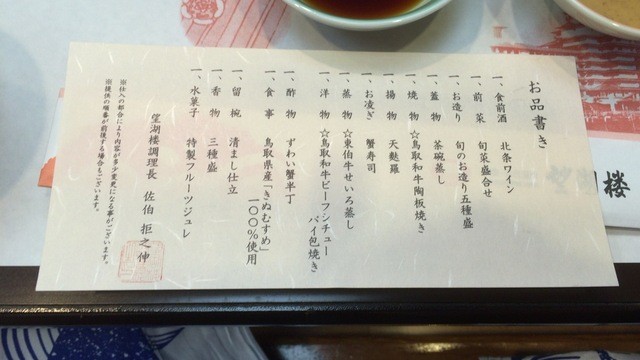 お品書き
一、食前酒　北条ワイン
一、前菜　旬菜盛合せ
一、お造り　旬のお造り五種盛
一、蓋物　茶碗蒸し
一、焼物　☆鳥取和牛陶板焼き
一、揚物　天麩羅
一、お凌ぎ　蟹寿司
一、蒸物　☆東伯牛せいろ蒸し
一、洋物　☆鳥取和牛ビーフシチュー
パイ包焼き
一、酢物　ずわい蟹半丁
一、食事　鳥取県産「きぬむすめ」
一〇〇％使用
一、留椀　清まし仕立
一、香物　三種盛
一、水菓子　特製フルーツジュレ
望湖楼調理長　佐伯　拒之伸
※仕入の都合により内容が多少変更になる事がございます。
※提供の順番が前後する場合もございます。
楼